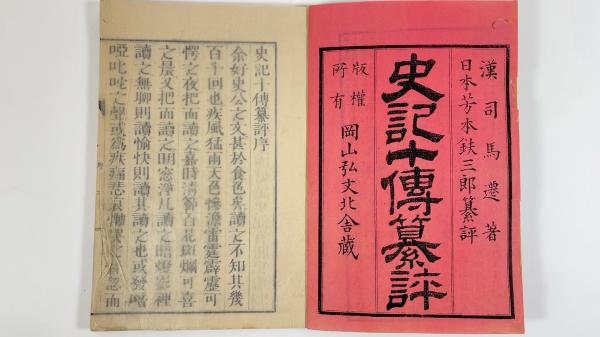 漢司馬遷著
日本芳本鉄三郎纂評
史記十傳纂評
版權
所有
岡山弘文北舍藏
史記十傳纂評序
余好史公之文甚於食色矣讀之不知其幾
百千回也疾風猛雨天色慘澹雷霆霹靂可
愕之夜把而讀之嘉時淸節百花斑爛可喜
之晨又把而讀之明窓淨几讀之暗燈影裡
讀之無聊則讀愉快則讀其讀之也或發喑
啞叱咤之聲或為疾痛悲哀慟哭之忽而